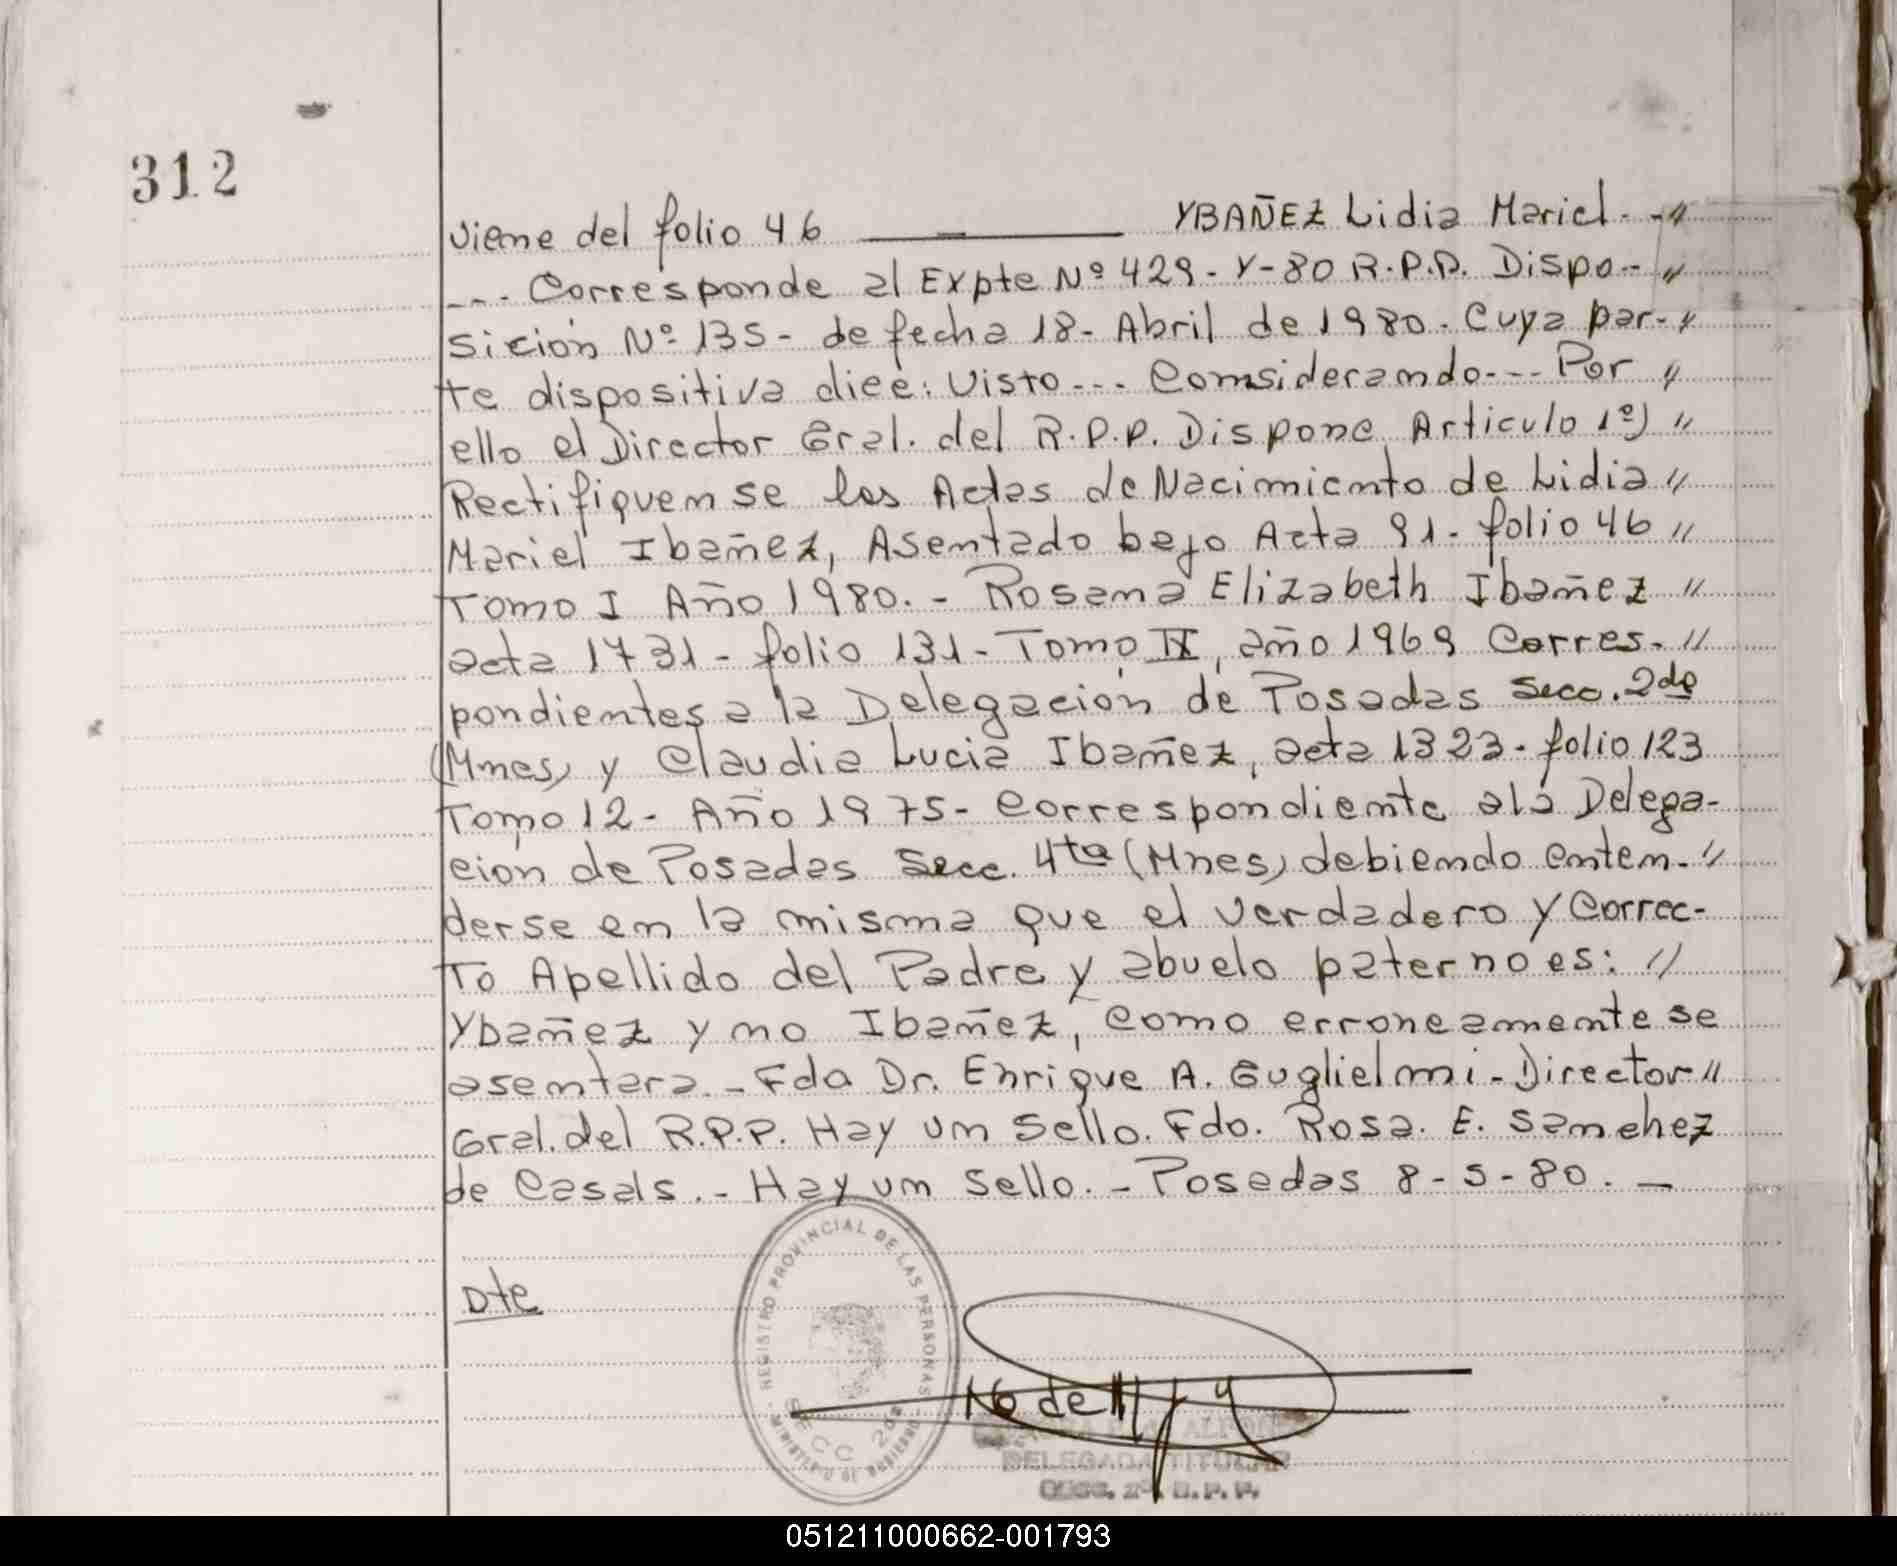 312
Viene del folio 46 ——— YBAÑEZ Lidia Mariel. - "
--- Corresponde al Expte Nº 429- Y-80 R.P.P. Dispo- "
sición Nº 135- de fecha 18- Abril de 1980. Cuya par- "
te dispositiva dice: Visto --- Considerando --- Por "
ello el Director Gral. del R.P.P. Dispone Articulo 1º) "
Rectifiquense las Actas de Nacimiento de Lidia "
Mariel Ibañez, Asentado bajo Acta 91- folio 46 "
Tomo I Año 1980. - Rosana Elizabeth Ibañez "
acta 1731- folio 131- Tomo IX, año 1969 Corres- "
pondientes a la Delegación de Posadas Secc. 2da
(Mnes) y Claudia Lucia Ibañez, acta 1323- folio 123
Tomo 12- Año 1975- Correspondiente a la Delega-
ción de Posadas Secc. 4ta (Mnes) debiendo enten- "
derse en la misma que el verdadero y Correc-
to Apellido del Padre y abuelo paterno es: "
Ybañez y no Ibañez, como erroneamente se
asentara. - Fdo Dr. Enrique A. Guglielmi - Director "
Gral. del R.P.P. Hay un Sello. Fdo. Rosa. E. Sanchez
de Casals. - Hay un Sello. - Posadas 8-5-80. —
Dte
REGISTRO PROVINCIAL DE LAS PERSONAS
MINISTERIO DE GOBIERNO
SECC 2da
DELEGADA TITULAR
051211000662-001793